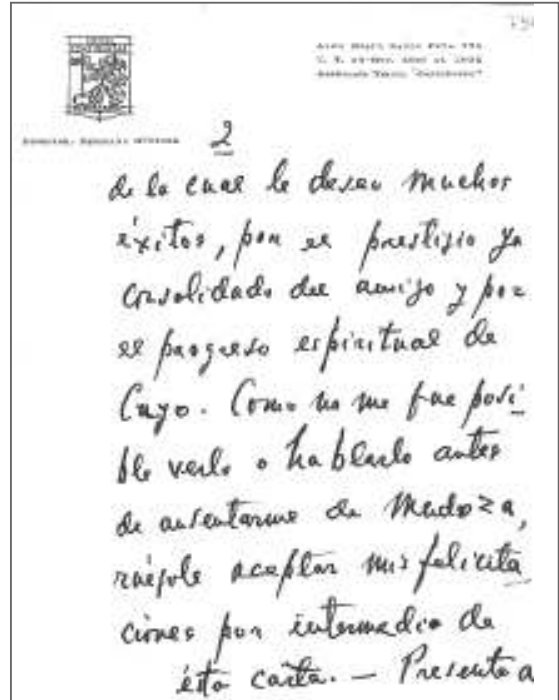 2
de la cual le deseo muchos
éxitos, por el prestigio ya
consolidado del amigo y por
el progreso espiritual de
Cuyo. Como no me fue posi-
ble verlo o hablarlo antes
de ausentarme de Mendoza,
ruégole aceptar mis felicita
ciones por intermedio de
ésta carta. — Presento a